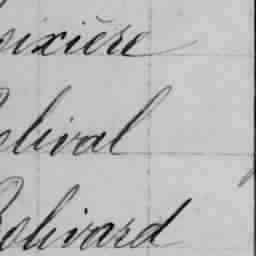 oixière
elival
Bolivard